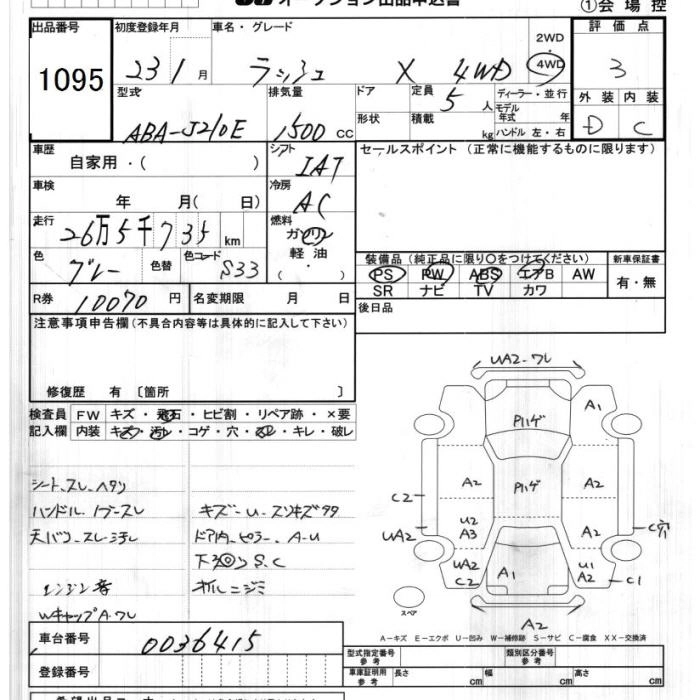 オークション出品申込書
①会場控
出品番号 1095
初度登録年月 23 1 月
車名・グレード ラッシュ X 4WD
2WD・4WD
評価点 3
外装 内装
D C
型式 ABA-J210E
排気量 1500 CC
ドア
形状
定員 5 人
積載 kg
ディーラー・並行
モデル年式 年
ハンドル 左・右
車歴 自家用・( )
シフト IAT
セールスポイント (正常に機能するものに限ります)
車検 年 月( 日)
冷房 AC
走行 26万5千735 km
燃料 ガソリン
軽油
色 グレー 色替 色コード S33
装備品 (純正品に限り〇をつけてください)
新車保証書
PS PW ABS エアB AW
SR ナビ TV カワ
有・無
R券 10070 円
名変期限 月 日
後日品
注意事項申告欄(不具合内容等は具体的に記入して下さい)
修復歴 有 〔箇所 〕
検査員記入欄
FW キズ・飛石・ヒビ割・リペア跡・×要
内装 キズ・汚レ・コゲ・穴・スレ・キレ・破レ
シート、スレ、ヘタリ
ハンドル、ノブ-スレ
キズ-U-スリキズタタ
天バリ-スレ-汚レ
ドア内、ピラー、A-U
下マワリS.C
エンジン音
オイルニジミ
WキャップA.ワレ
UA2-ワレ
A1
Pハゲ
A2
Pハゲ
A2
C2
UA2
U2
A3
A2
C穴
UA2
C2
A1
U1
A2
C1
スペア
A2
A-キズ E-エクボ U-凹み W-補修跡 S-サビ C-腐食 XX-交換済
車台番号 0036415
登録番号
型式指定番号 参考
類別区分番号 参考
車庫証明用 参考
長さ cm 幅 cm 高さ cm